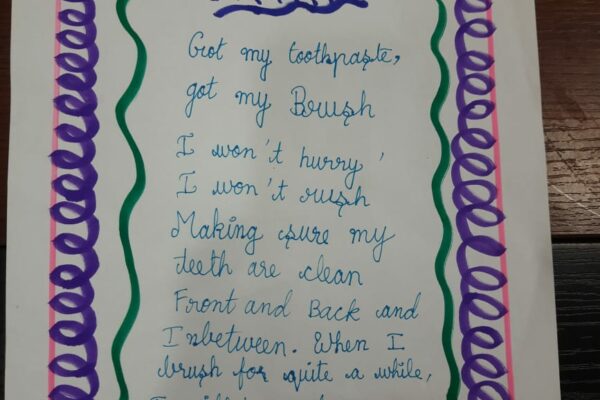 Got my toothpaste,
got my Brush
I won't hurry,
I won't rush
Making sure my
teeth are clean
Front and Back and
Inbetween. When I
brush for quite a while,